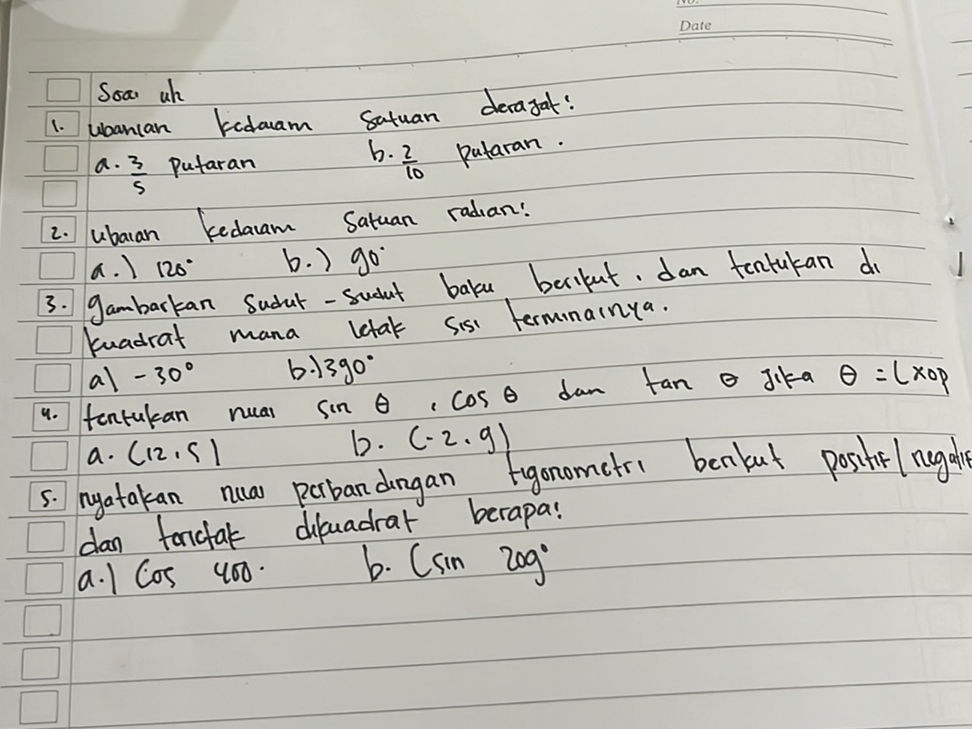 No.
Date
Soa uh
1. ubahlah kedalam satuan derajat!
a. 3/5 putaran b. 2/10 putaran.
2. ubalan kedalam satuan radian!
a.) 120° b.) 90°
3. gambarkan sudut-sudut baku berikut, dan tentukan di
kuadrat mana letak sisi terminalnya.
a) -30° b.) 390°
4. tentukan nilai sin θ, cos θ dan tan θ jika θ = (xop
a. (12,5) b. (-2,9)
5. nyatakan nilai perbandingan trigonometri berikut positif/negatif
dan terletak dikuadrat berapa!
a.) Cos 400. b. (sin 209°